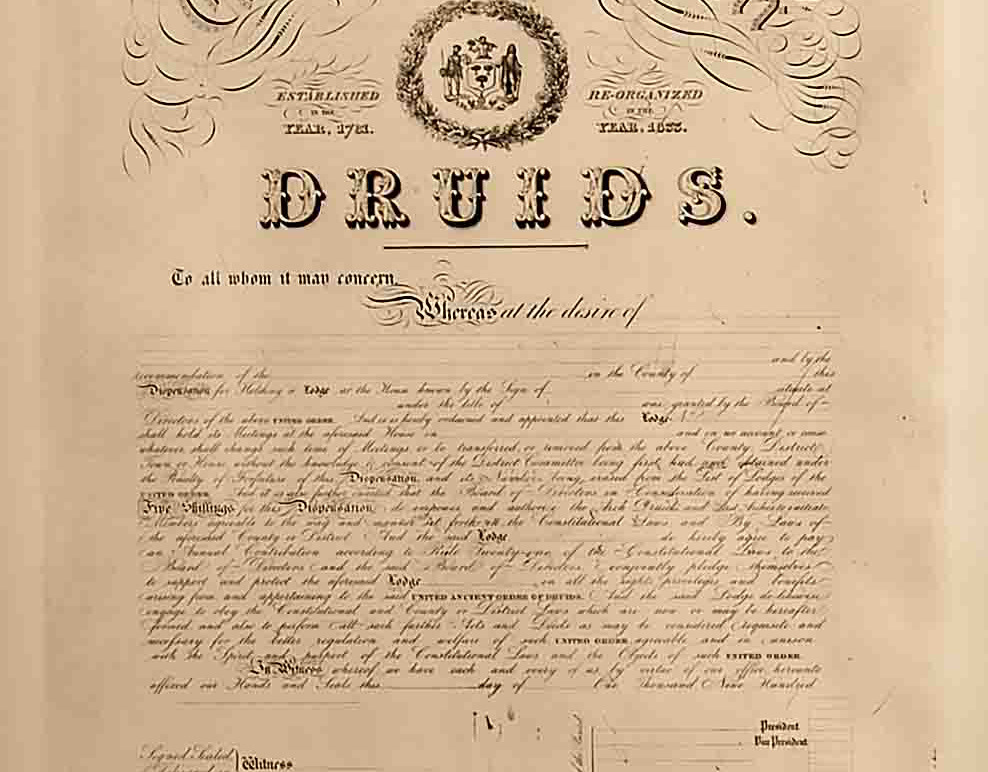 ESTABLISHED
IN THE
YEAR, 1781.
RE-ORGANIZED
IN THE
YEAR, 1833.
DRUIDS.
To all whom it may concern.
Whereas at the desire of
and by the
recommendation of the in the County of this
Dispensation for Holding a Lodge at the House known by the Sign of situate at
under the title of was granted by the Board of
Directors of the above UNITED ORDER. And it is hereby ordained and appointed that this Lodge
shall hold its Meetings at the aforesaid House in and on no account or cause
whatever shall change such time of Meetings or be transferred or removed from the above County District
Town or House without the knowledge & consent of the District Committee being first had and obtained under
the Penalty of Forfeiture of this Dispensation and its Number being erased from the List of Lodges of the
UNITED ORDER. And it is also further enacted that the Board of Directors in Consideration of having received
Five Shillings for this Dispensation, do empower and authorize the Arch Druids and Past Arches to initiate
Members agreeable to the way and manner set forth in the Constitutional Laws and By Laws of
the aforesaid County or District And the said Lodge do hereby agree to pay
an Annual Contribution according to Rule Twenty-one of the Constitutional Laws to the
Board of Directors and the said Board of Directors conjointly pledge themselves
to support and protect the aforesaid Lodge in all the rights privileges and benefits
arising from and appertaining to the said UNITED ANCIENT ORDER OF DRUIDS. And the said Lodge do likewise
engage to obey the Constitutional and County or District Laws which are now or may be hereafter
formed and also to perform all such further Acts and Deeds as may be considered requisite and
necessary for the better regulation and welfare of such UNITED ORDER agreeable and in unison
with the Spirit and purport of the Constitutional Laws and the Objects of such UNITED ORDER.
In Witness whereof we have each and every of us by virtue of our office hereunto
affixed our Hands and Seals this day of One Thousand Nine Hundred
President
Vice President
Signed Sealed
Witness